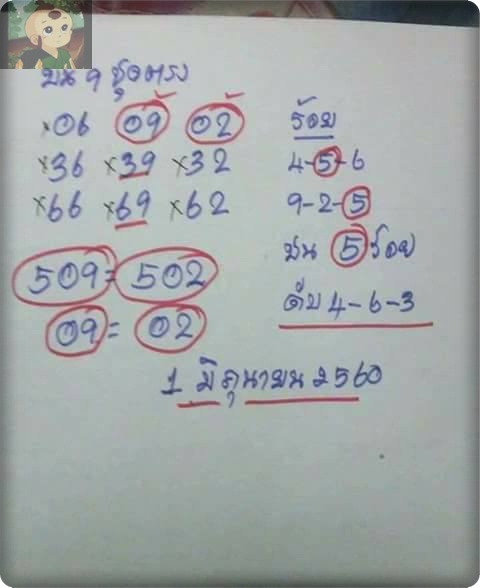 บน 9 ชุดตรง
×06 09 02
×36 ×39 ×32
×66 ×69 ×62
509 = 502
09 = 02
ร้อย
4-5-6
9-2-5
ชน 5 ร้อย
ดับ 4-6-3
1 มิถุนายน 2560